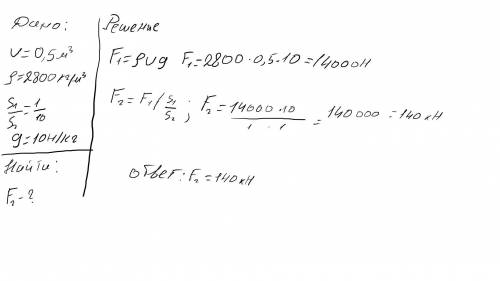 Дано:
V = 0,5 м³
ρ = 2800 кг/м³
S₁/S₂ = 1/10
g = 10Н/кг
Найти:
F₂ - ?
Решение
F₁ = ρVg F₁ = 2800 · 0,5 · 10 = 14000Н
F₂ = F₁ / S₁/S₂ ; F₂ = 14000 · 10 / 1 · 1 = 140 000 = 140 кН
Ответ: F₂ = 140 кН